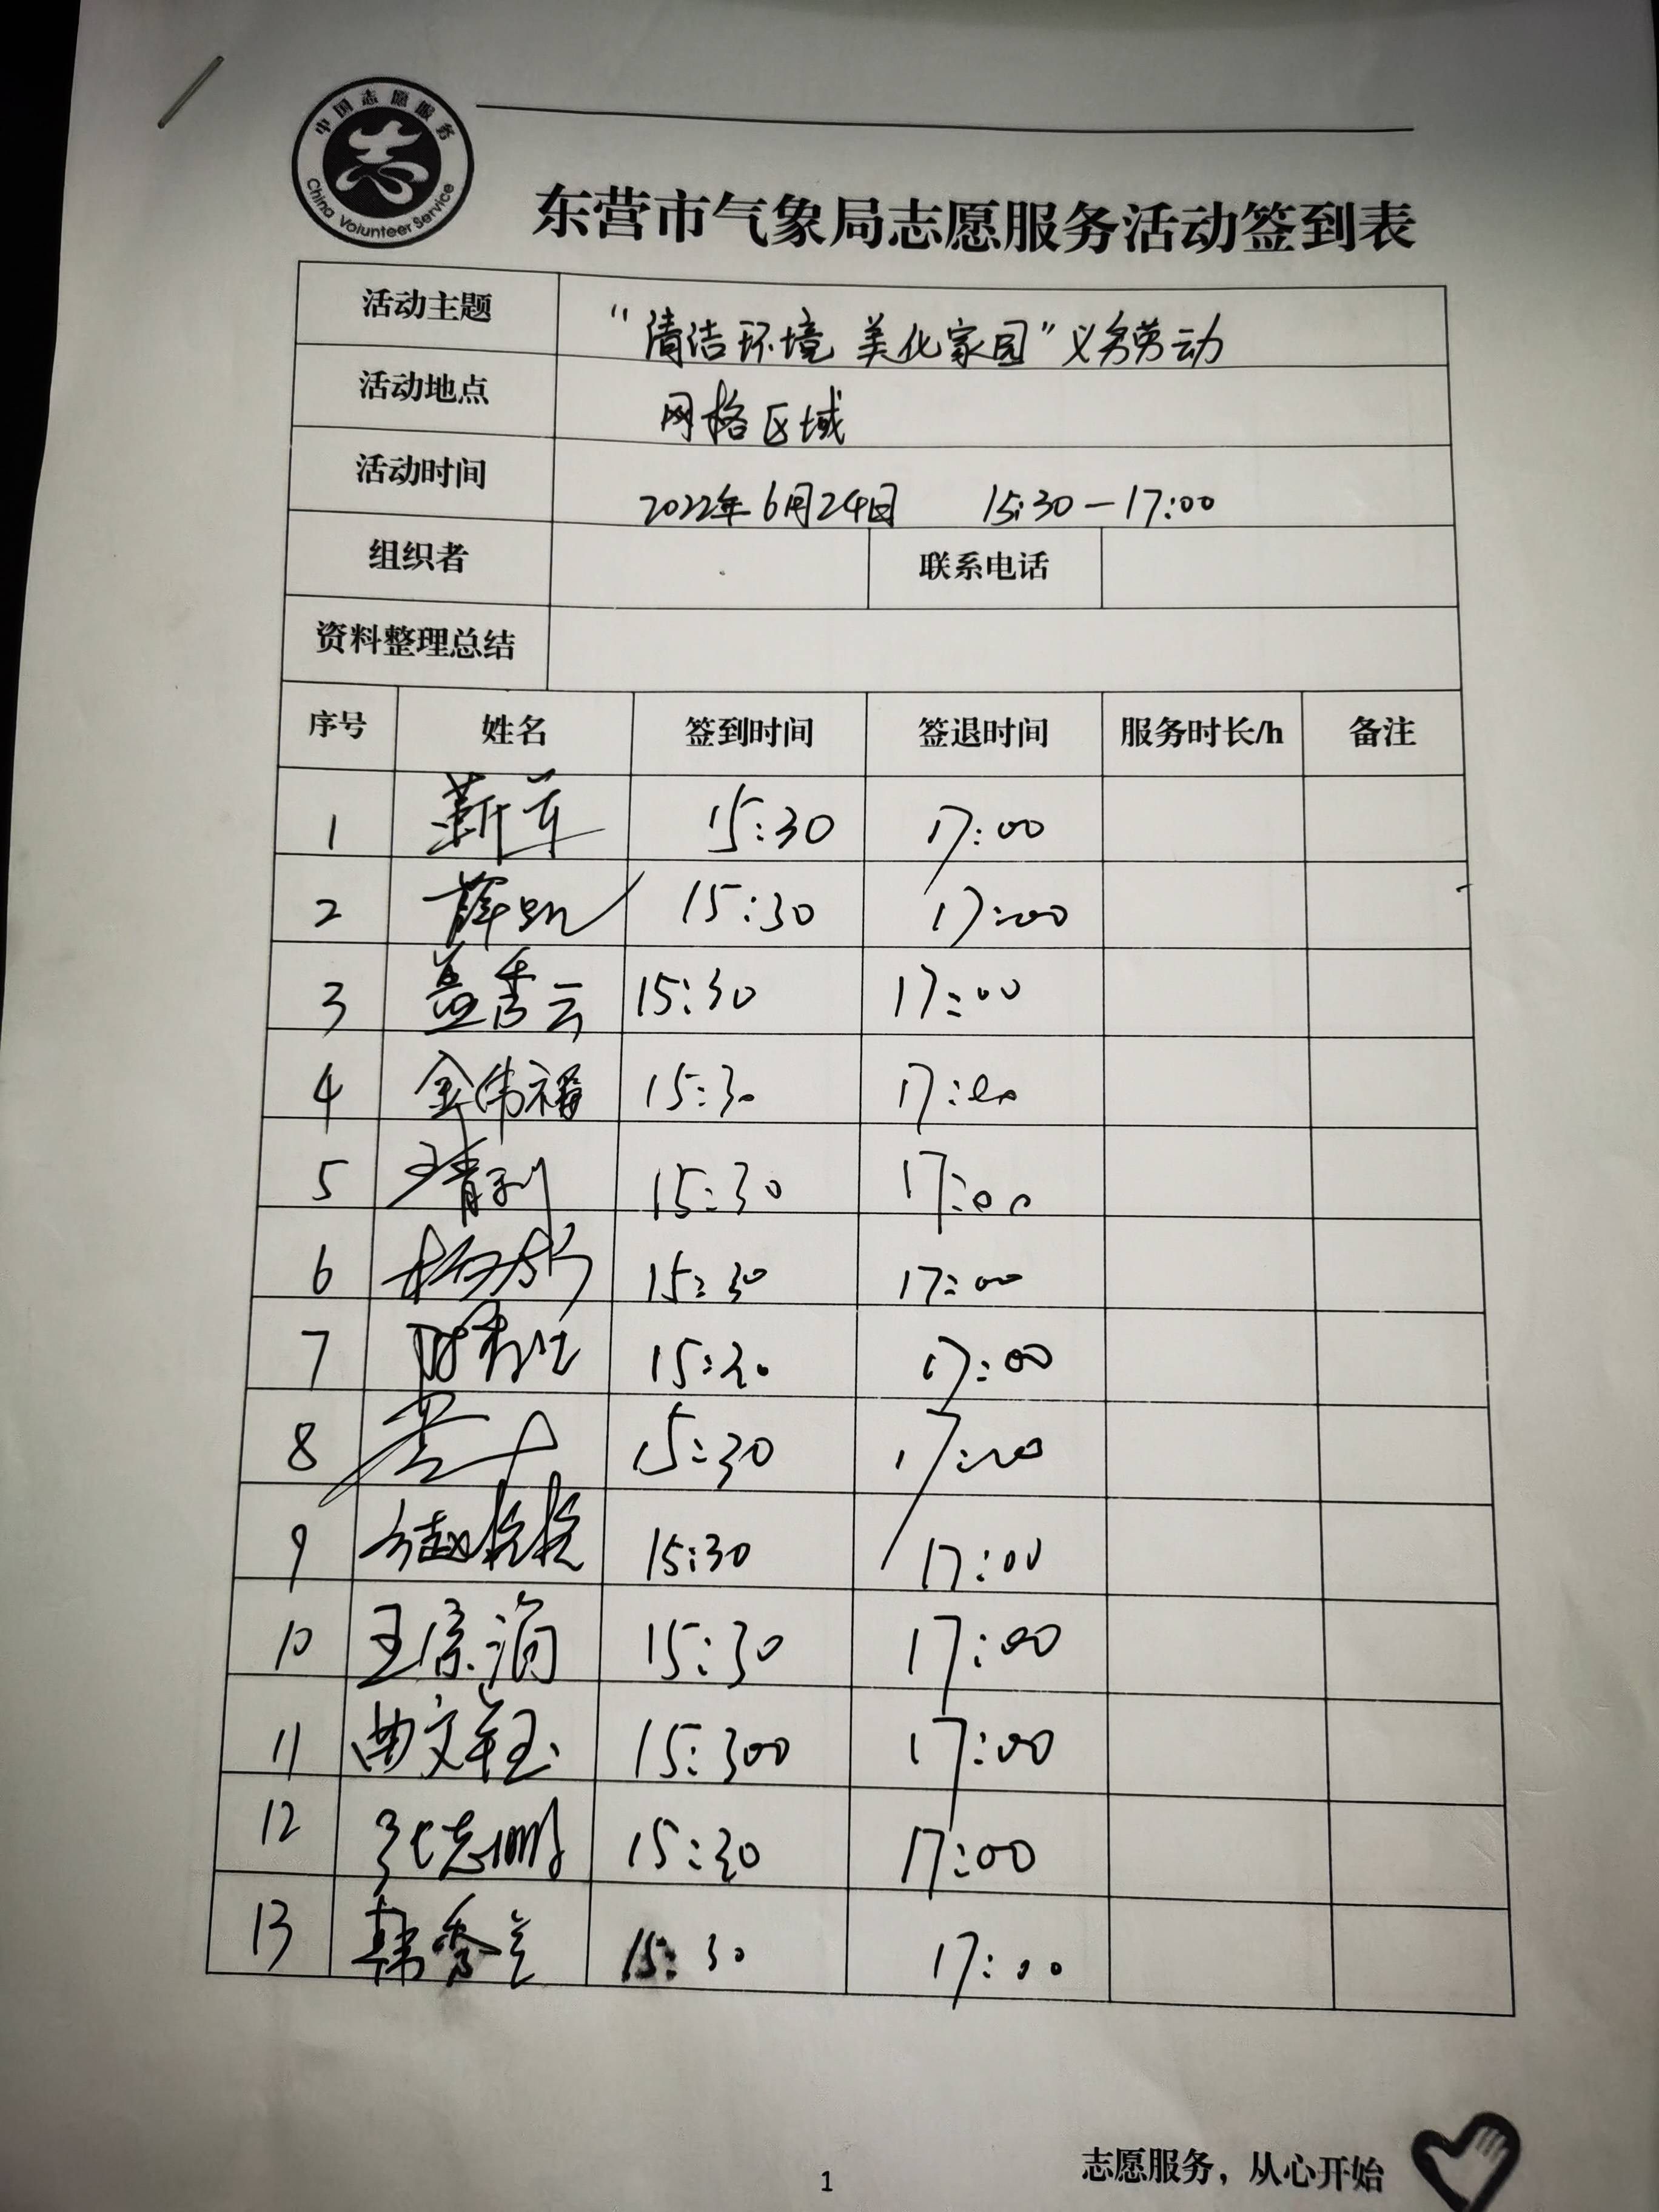 中国志愿服务
China Volunteer Service
东营市气象局志愿服务活动签到表
活动主题 “清洁环境 美化家园”义务劳动
活动地点 网格区域
活动时间 2022年6月24日 15:30—17:00
组织者 联系电话
资料整理总结
序号 姓名 签到时间 签退时间 服务时长/h 备注
1 15:30 17:00
2 15:30 17:00
3 盖秀云 15:30 17:00
4 金伟福 15:30 17:00
5 15:30 17:00
6 15:30 17:00
7 15:30 17:00
8 15:30 17:00
9 15:30 17:00
10 15:30 17:00
11 曲文 15:300 17:00
12 张志鹏 15:30 17:00
13 韩秀 15:30 17:00
志愿服务，从心开始
1